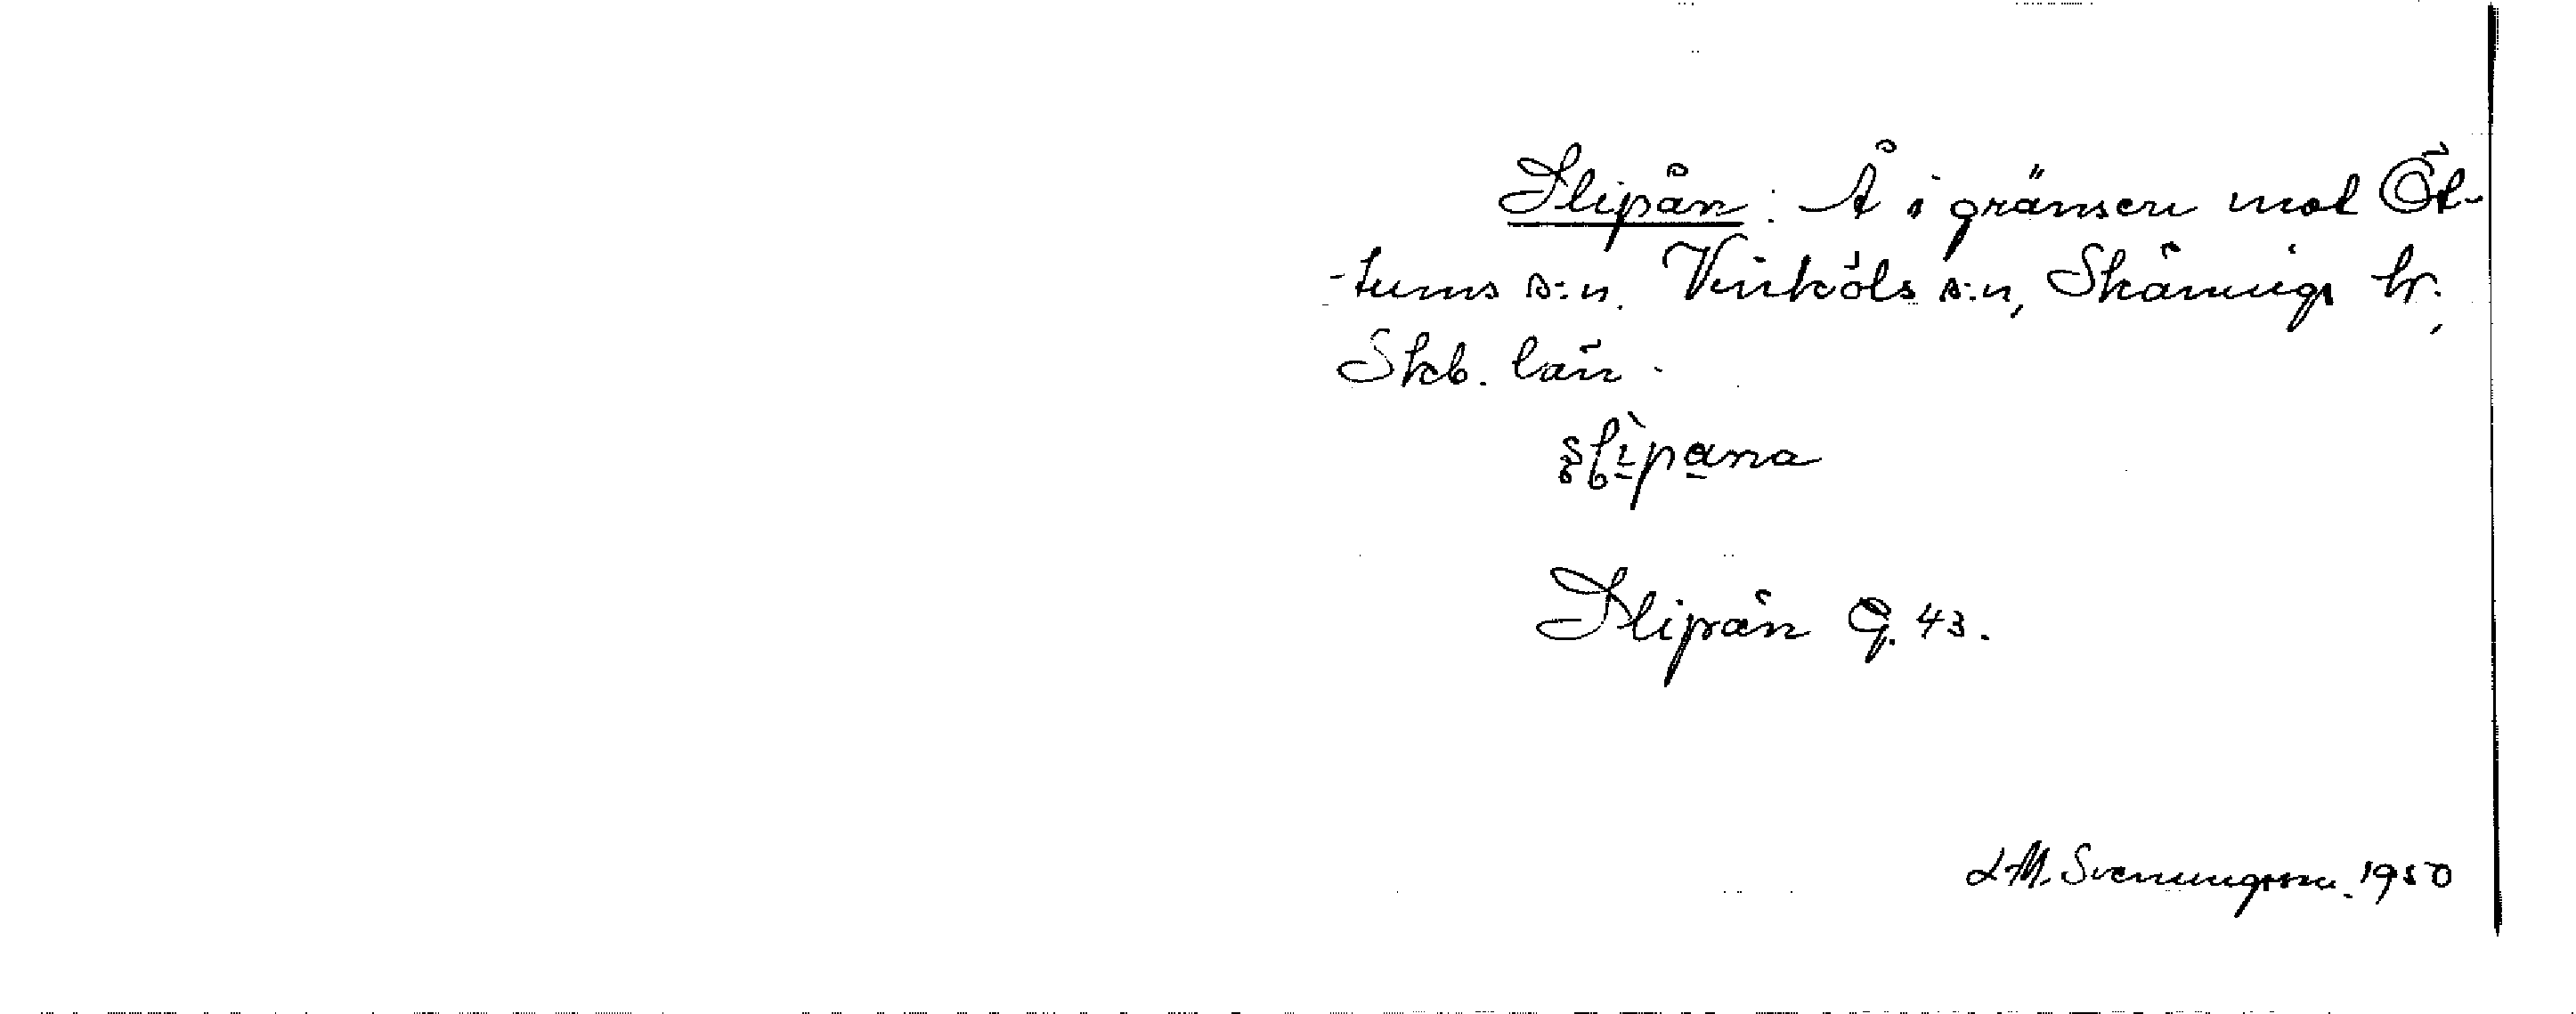 Slipån: Å i gränsen mot Öt-
-tums s:n. Vinköls s:n, Skånings hr.,
Skb. län.
slìpana
Slipån G. 43.
L.M. Svenungsson. 1950